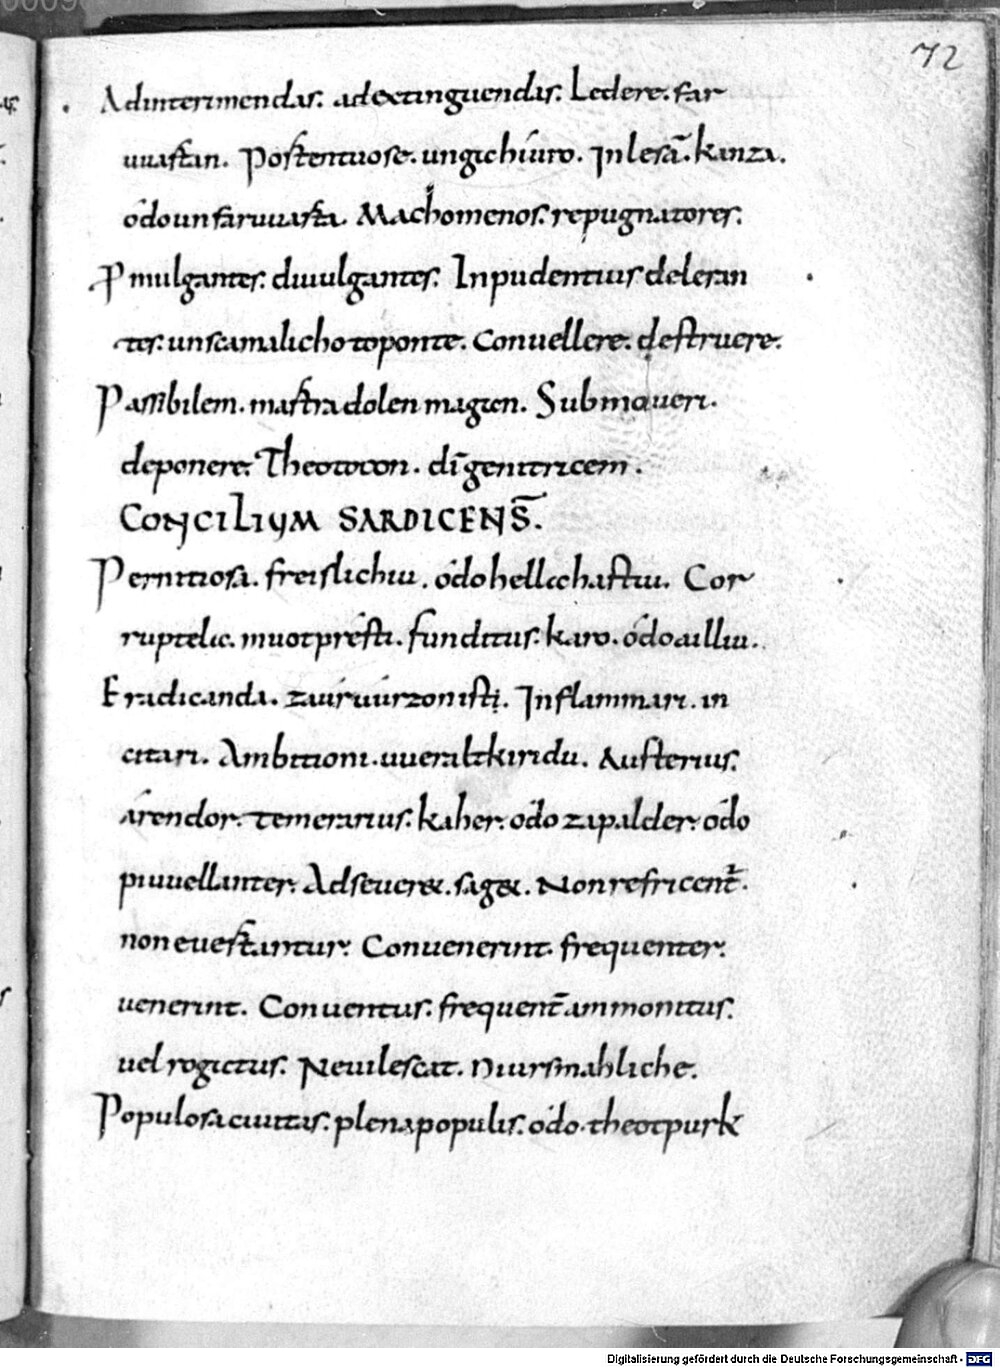 72
Adinterimendas. adextinguendas. Ledere. far
uuastan. Postentuose. ungichiuro. Inlesā. kanza.
ódounfaruuasta. Machomenos. repugnatores.
Pmulgantes. diuulgantes. Inpudentius deleran
tes. unscamalicho toponte. Conuellere. destruere.
Passibilem. mastra dolen magien. Submoueri.
deponere. Theotocon. dī genitricem.
CONCILIUM SARDICENS̄.
Pernitiosa. freislichiu. ódo hellechastiu. Cor
ruptelæ. muotprésti. funditus. karo. ódo alliu.
Eradicanda. zaúruúrzonisti. Inflammari. in
citari. Ambitioni. uueraltkiridu. Austerius.
árendor. temerarius. kaher. ódo zapalder. ódo
piuuellanter. Adseueret. saget. Non refricent̄.
non euestantur. Conuenerint. frequenter.
uenerint. Conuentus. frequent̄ ammonitus.
uel rogitus. Neuilescat. niursmahliche.
Populosa ciuitas. plena populis. ódo. theotpurk
Digitalisierung gefördert durch die Deutsche Forschungsgemeinschaft - DFG